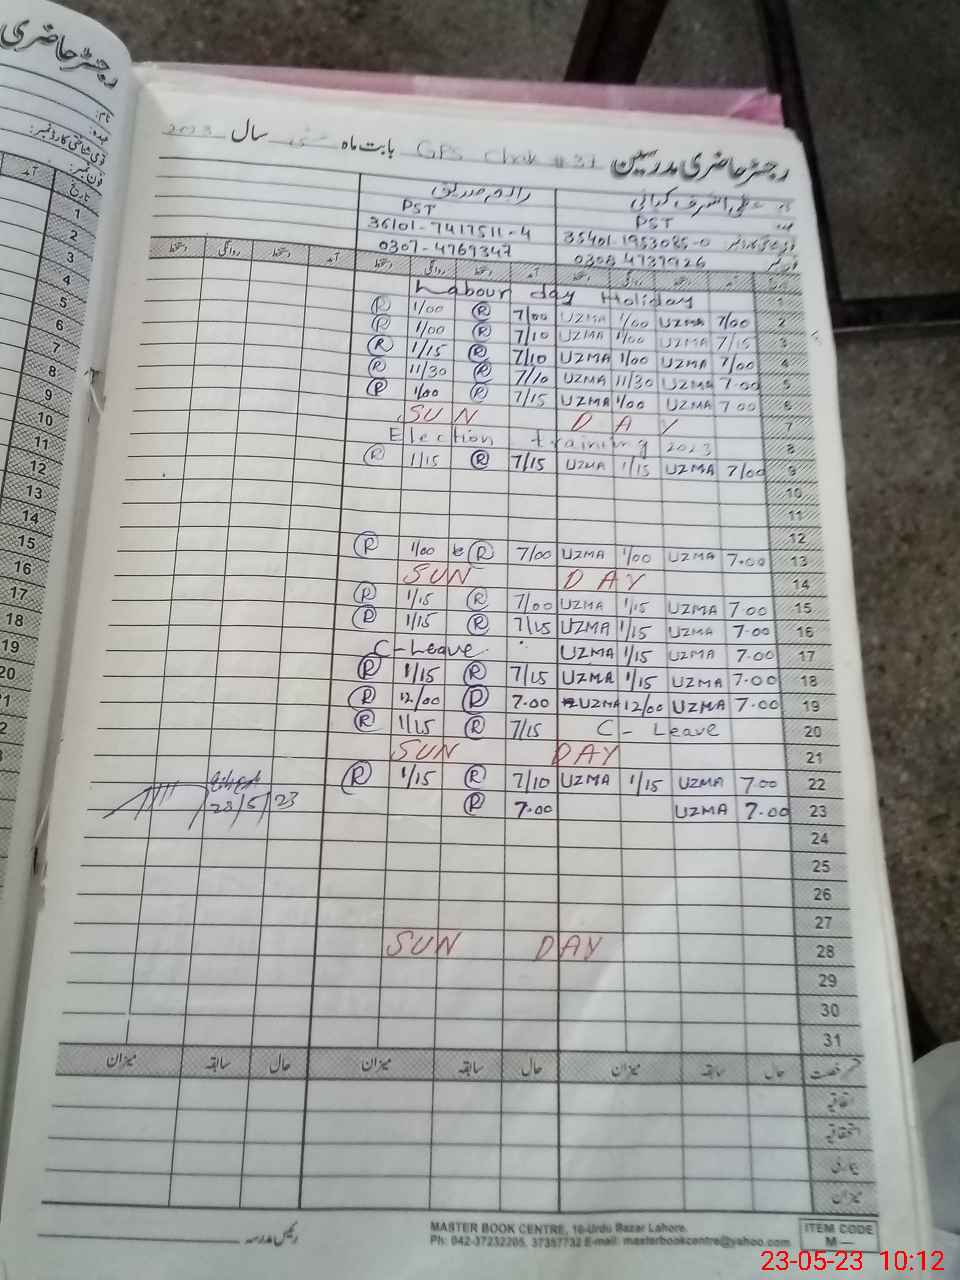 رجسٹر حاضری
نام:
عہدہ:
قومی شناختی کارڈ نمبر:
فون نمبر:
تاریخ
آمد
1
2
3
4
5
6
7
8
9
10
11
12
13
14
15
16
17
18
19
20
رجسٹر حاضری مدرسین GPS Chak # 31 بابت ماہ مئی سال 2023
PST PST
35401-1953085-0 36101-7417511-4
0308 4739926 0307-4769347
آمد دستخط روانگی دستخط آمد دستخط روانگی دستخط آمد دستخط روانگی دستخط
Labour day Holiday 1
R 1/00 R 7/00 UZMA 1/00 UZMA 7/00 2
R 1/00 R 7/10 UZMA 1/00 UZMA 7/15 3
R 1/15 R 7/10 UZMA 1/00 UZMA 7/00 4
R 11/30 R 7/10 UZMA 11/30 UZMA 7.00 5
R 1/00 R 7/15 UZMA 1/00 UZMA 7 00 6
SUN DAY 7
Election training 2023 8
R 1/15 R 7/15 UZMA 1/15 UZMA 7/00 9
10
11
12
R 1/00 R 7/00 UZMA 1/00 UZMA 7.00 13
SUN DAY 14
R 1/15 R 7/00 UZMA 1/15 UZMA 7 00 15
R 1/15 R 7/15 UZMA 1/15 UZMA 7.00 16
C-Leave UZMA 1/15 UZMA 7.00 17
R 1/15 R 7/15 UZMA 1/15 UZMA 7.00 18
R 12/00 R 7.00 UZMA 12/00 UZMA 7.00 19
R 1/15 R 7/15 C- Leave 20
SUN DAY 21
R 1/15 R 7/10 UZMA 1/15 UZMA 7.00 22
23/5/23 R 7.00 UZMA 7.00 23
24
25
26
27
SUN DAY 28
29
30
31
قسم رخصت حال سابقہ میزان حال سابقہ میزان حال سابقہ میزان
اتفاقیہ
استحقاقیہ
بیماری
میزان
رئیس مدرسہ
MASTER BOOK CENTRE, 16-Urdu Bazar Lahore.
Ph: 042-37232205, 37357732 E-mail: masterbookcentre@yahoo.com
ITEM CODE
M —
23-05-23 10:12